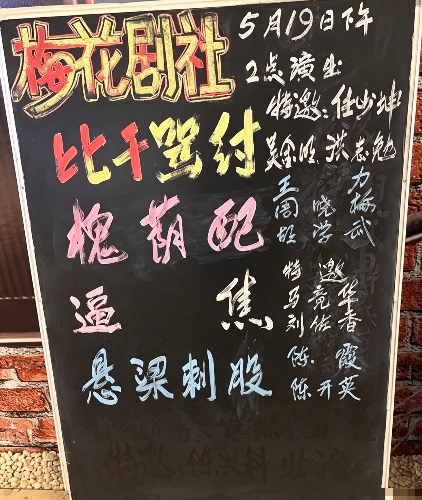 梅花剧社
5月19日下午
2点演出
特邀:任少坤
吴金明 洪忠勉
比干哭付
槐荫配
王 力
周晓梅
胡学武
逼焦
特邀
马竟华
刘佐香
陈霞
陈开英
悬梁刺股